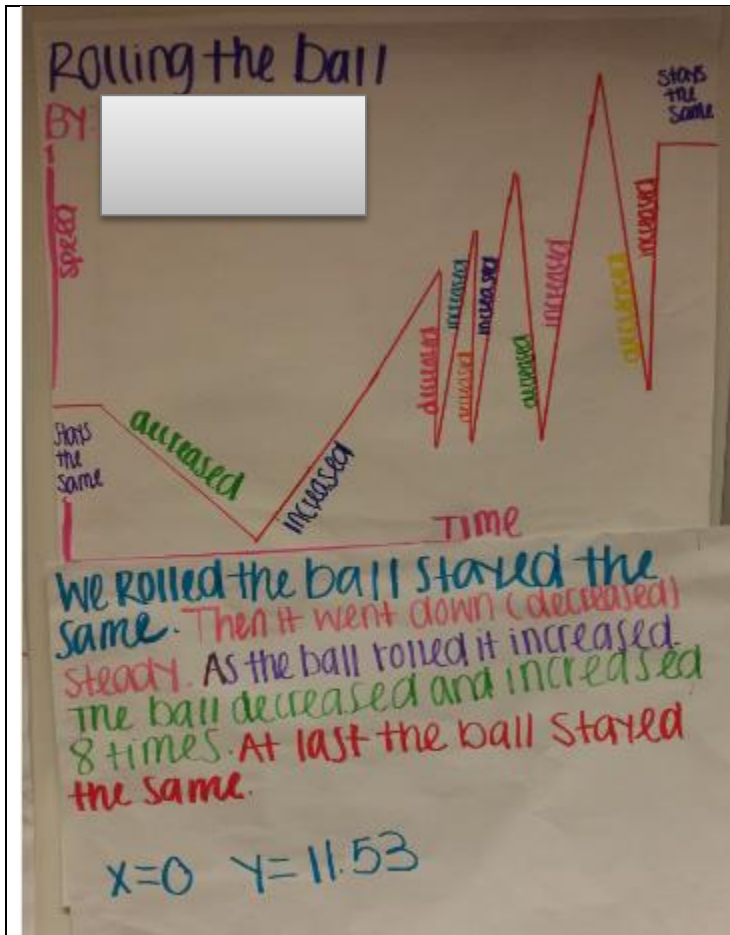 Rolling the ball
BY:
speed
stays
the
same
decreased
increased
decreased
increased
decreased
increased
decreased
increased
decreased
increased
stays
the
same
Time
We Rolled the ball stayed the
same. Then it went down (decreased)
steady. As the ball rolled it increased.
The ball decreased and increased
8 times. At last the ball stayed
the same.
X=0 Y=11.53